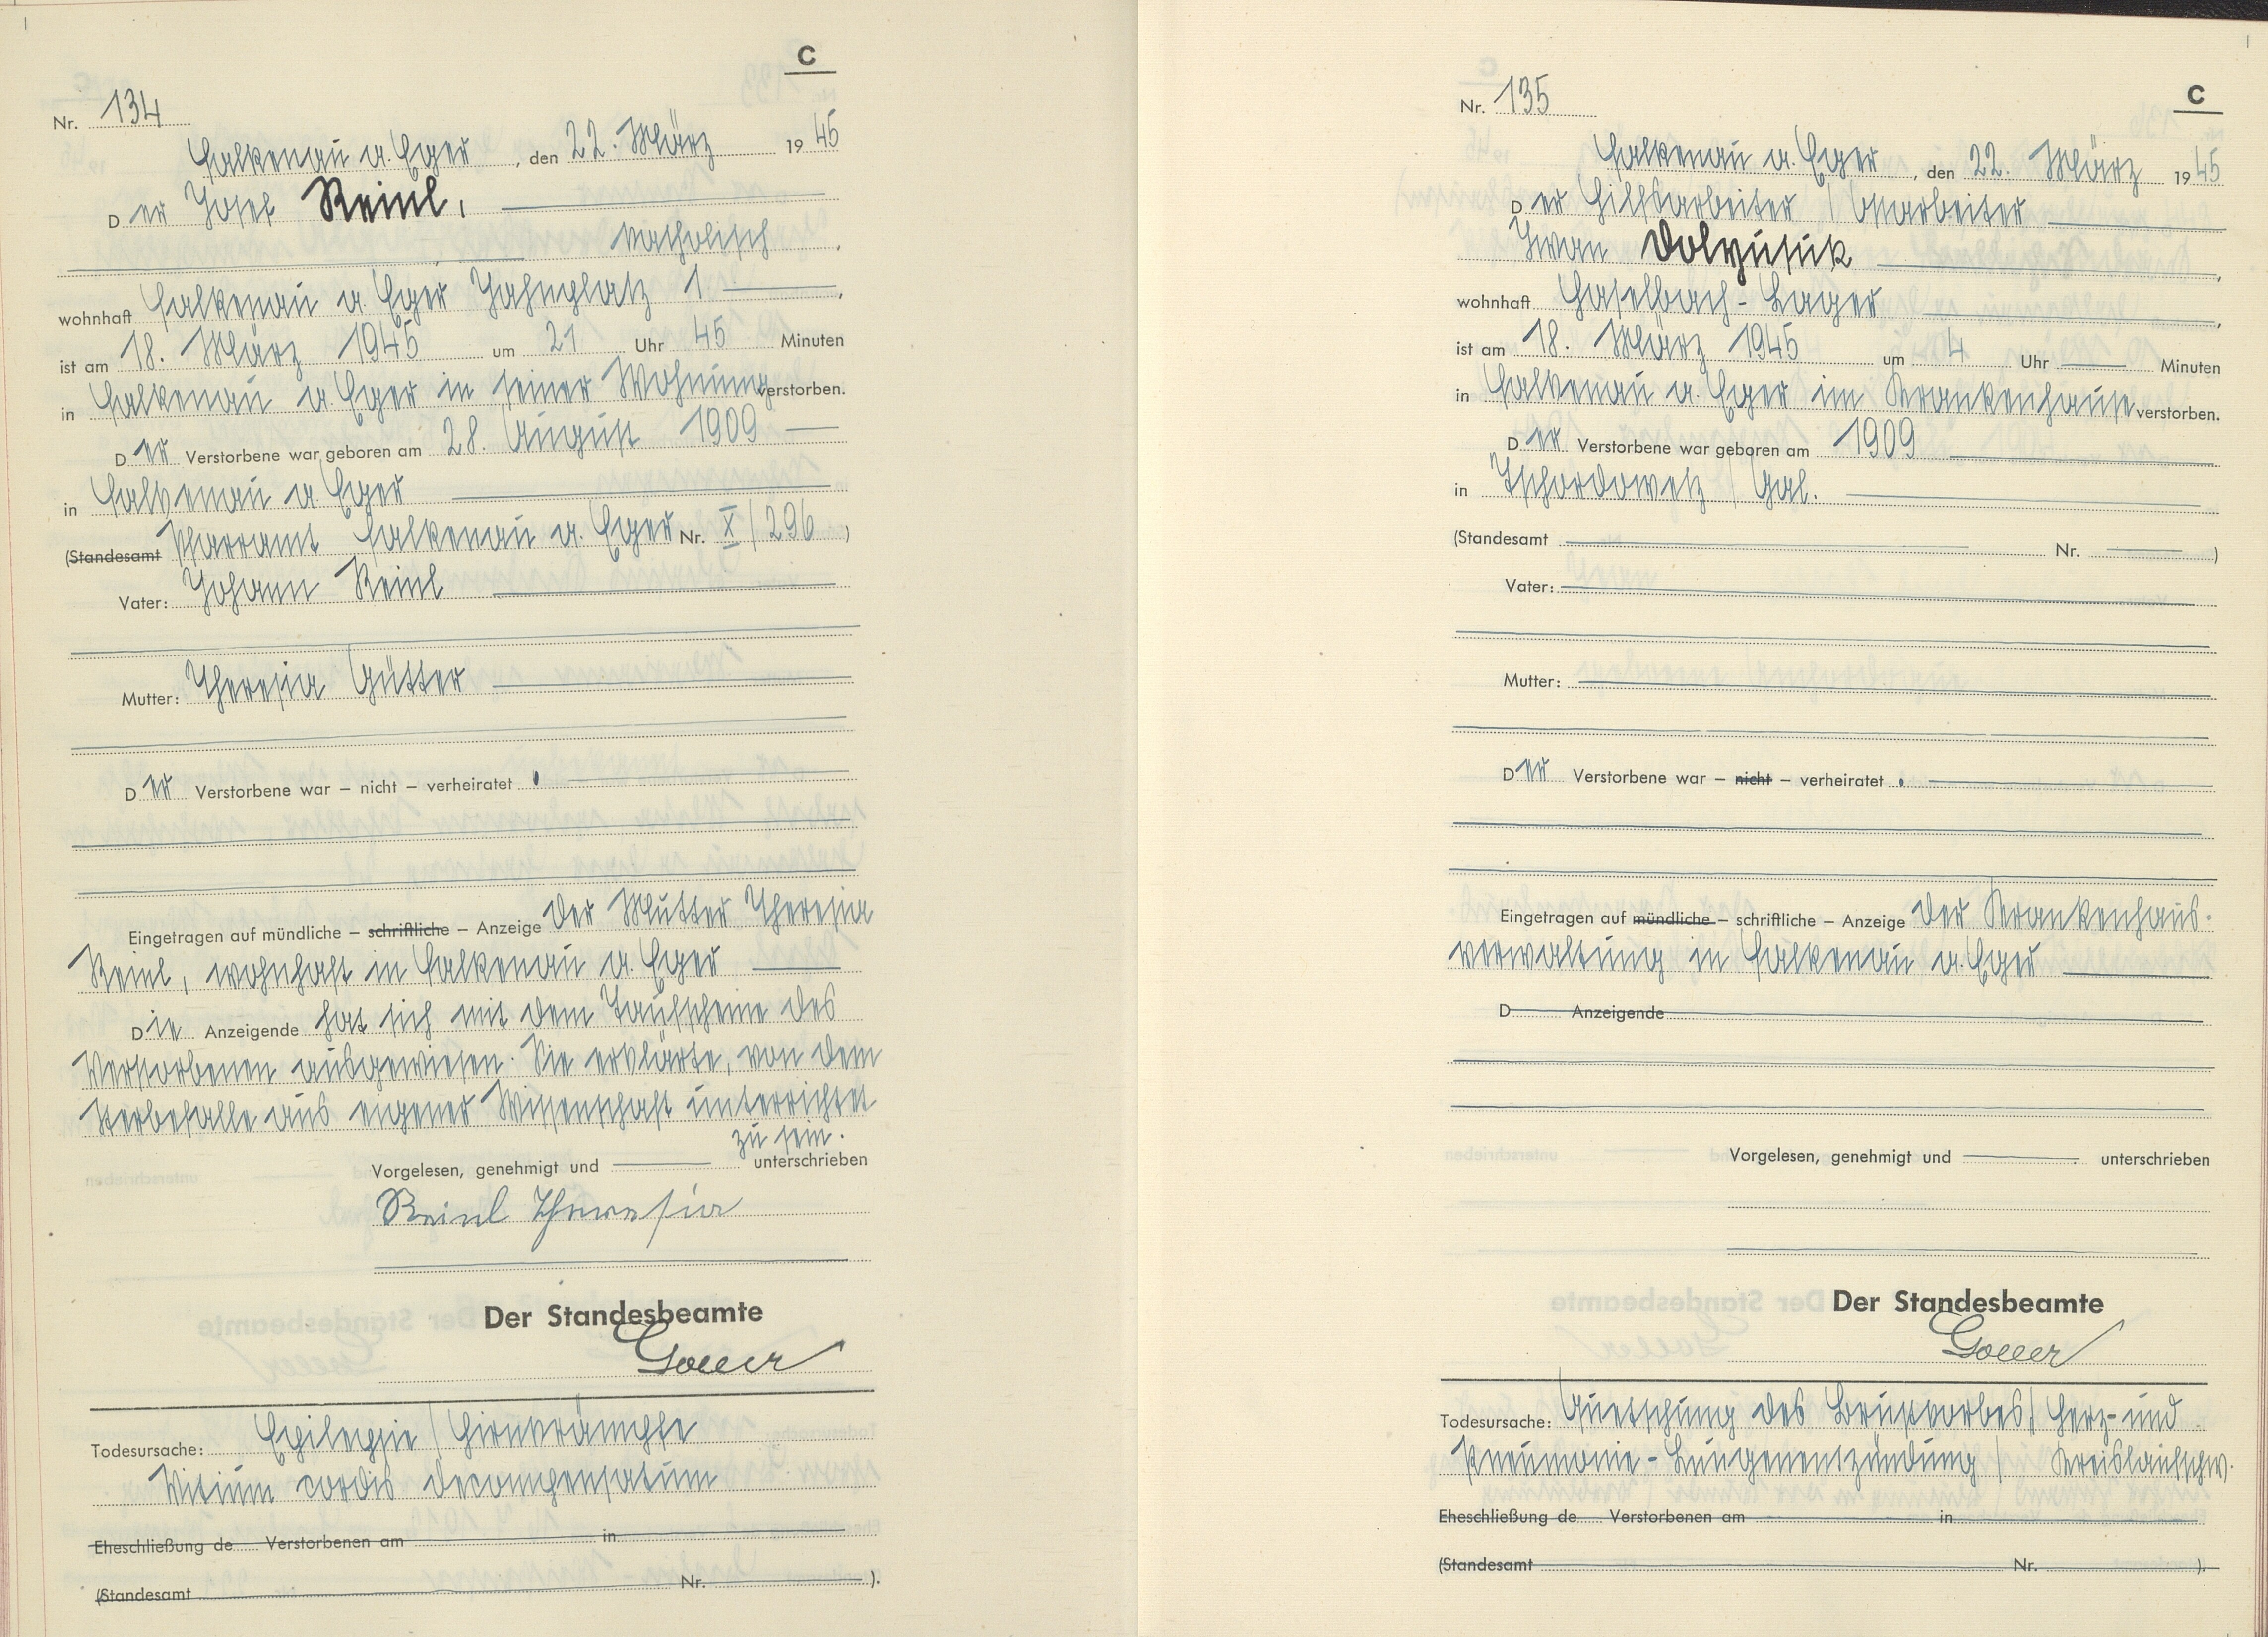 C
Nr. 134
Falkenau a. Eger, den 22. März 1945
Der Josef Reinl,
katholisch,
wohnhaft Falkenau a. Eger Jahnplatz 1,
ist am 18. März 1945 um 21 Uhr 45 Minuten
in Falkenau a. Eger in seiner Wohnung verstorben.
Der Verstorbene war geboren am 28. August 1909
in Falkenau a. Eger
(Standesamt Pfarramt Falkenau a. Eger Nr. X/296)
Vater: Johann Reinl
Mutter: Theresia Gütter
Der Verstorbene war – nicht – verheiratet.
Eingetragen auf mündliche – schriftliche – Anzeige der Mutter Theresia
Reinl, wohnhaft in Falkenau a. Eger
Die Anzeigende hat sich mit dem Taufscheine des
Verstorbenen ausgewiesen. Sie erklärte, von dem
Sterbefalle aus eigener Wissenschaft unterrichtet
zu sein.
Vorgelesen, genehmigt und unterschrieben
Reinl Theresia
Der Standesbeamte
Todesursache: Epilepsie / Hirnkrämpfe
Vitium cordis decompensatum
Eheschließung de Verstorbenen am in
(Standesamt Nr. ).
C
Nr. 135
Falkenau a. Eger, den 22. März 1945
Der Hilfsarbeiter / Ostarbeiter
Iwan
wohnhaft Haselbach-Lager,
ist am 18. März 1945 um 4 Uhr Minuten
in Falkenau a. Eger im Krankenhause verstorben.
Der Verstorbene war geboren am 1909
in Tschordowetz / Gal.
(Standesamt Nr. )
Vater:
Mutter:
Der Verstorbene war – nicht – verheiratet.
Eingetragen auf mündliche – schriftliche – Anzeige der Krankenhaus-
verwaltung in Falkenau a. Eger
D Anzeigende
Vorgelesen, genehmigt und unterschrieben
Der Standesbeamte
Todesursache: Quetschung des Brustkorbes / Herz- und
Pneumonie - Lungenentzündung / Kreislaufschw.
Eheschließung de Verstorbenen am in
(Standesamt Nr. ).